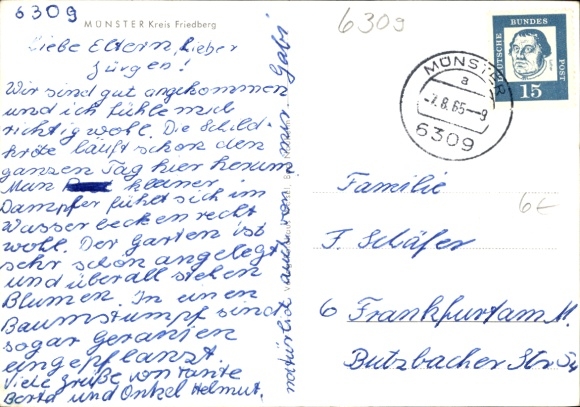 6309
MÜNSTER Kreis Friedberg
Liebe Eltern, Lieber
Jürgen!
Wir sind gut angekommen
und ich fühle mich
richtig wohl. Die Schild-
kröte läuft schon den
ganzen Tag hier herum.
Man kleiner
Dampfer fühlt sich im
Wasserbecken recht
wohl. Der Garten ist
sehr schön angelegt
und überall stehen
Blumen. In einen
Baumstumpf sind
sogar Geranien
eingepflanzt.
Viele Grüße von Tante
Berta und Onkel Helmut.
natürlich auch von mir Gabi
6309
DEUTSCHE BUNDES POST
15
MÜNSTER
a
-7.8.65--9
6309
Familie
6€
F. Schäfer
6 Frankfurt am M.
Butzbacher Str.